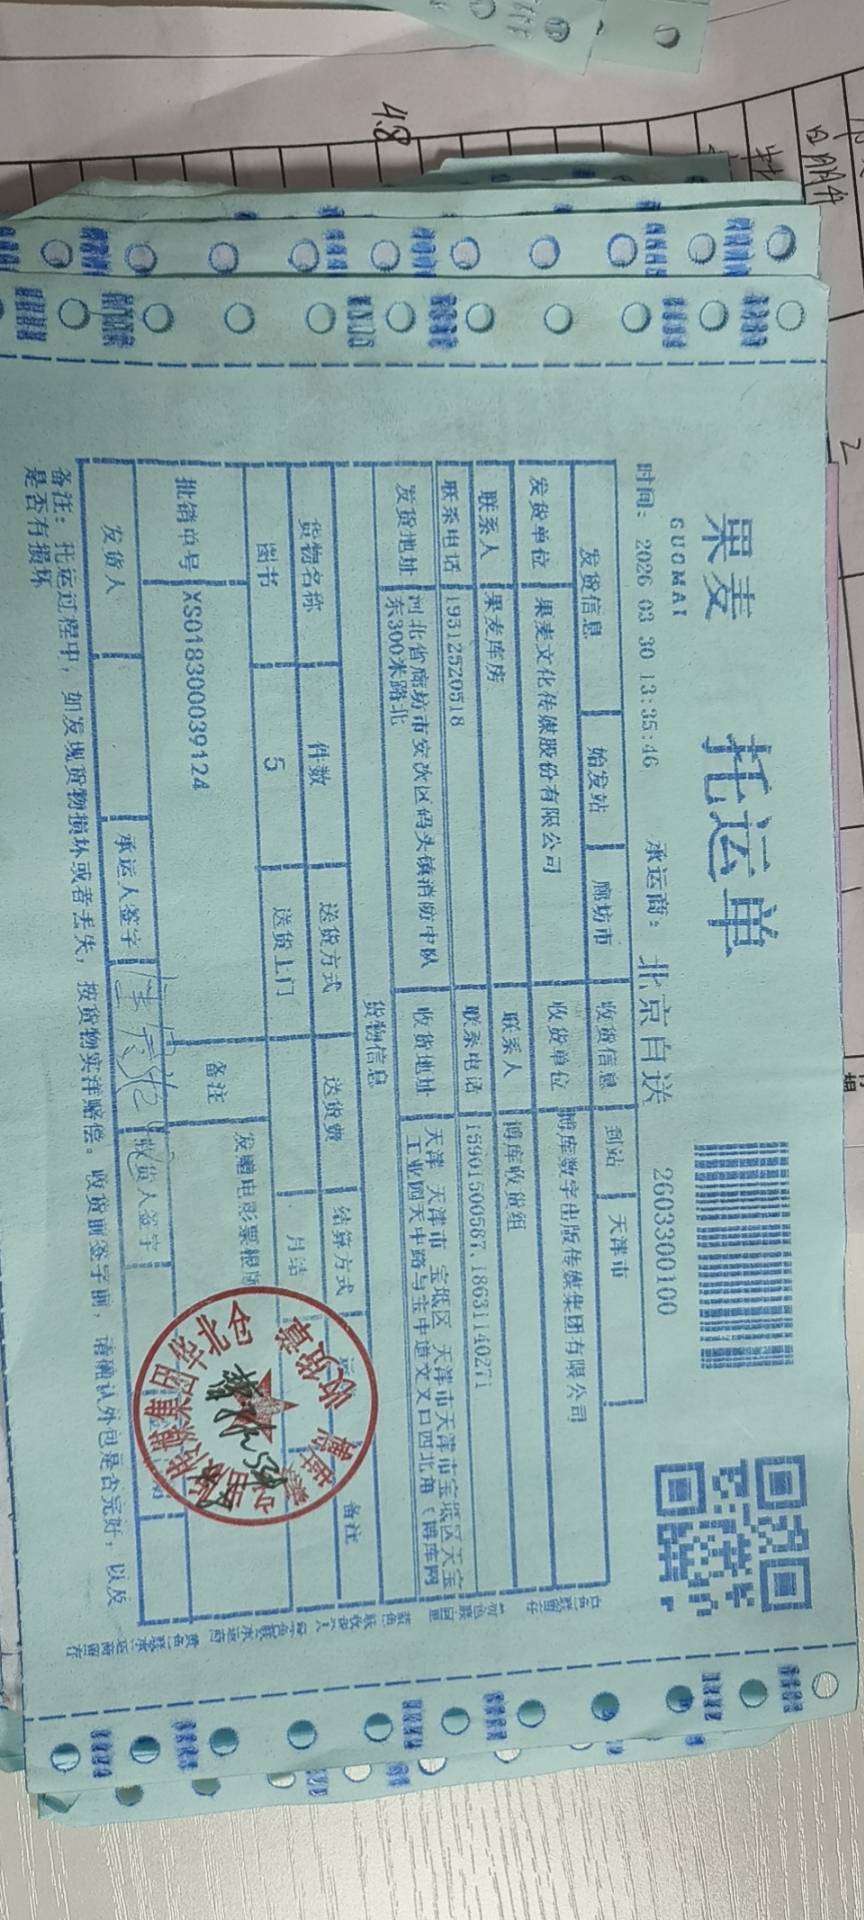 果麦 托运单
GUOMAI
时间: 2026 03 30 13:35:46 承运商: 北京自送 2603300100
发货信息 始发站 廊坊市 收货信息 到站 天津市
发货单位 果麦文化传媒股份有限公司 收货单位 博库数字出版传媒集团有限公司
联系人 果麦库房 联系人 博库收货组
联系电话 19312520518 联系电话 15901500587,18631140271
发货地址 河北省廊坊市安次区码头镇消防中队
东300米路北
收货地址 天津 天津市 宝坻区 天津市天津市宝坻区天宝
工业园天中路与宝中道交叉口西北角(博库网
货物信息
货物名称 件数 送货方式 送货费 结算方式 备注
图书 5 送货上门 月结
批销单号 XS018300039124 备注 发赠电影票根
发货人 承运人签字 收货人签字
备注: 托运过程中, 如发现货物损坏或者丢失, 按货物实洋赔偿。收货前签字前, 请确认外包是否完好, 以及
是否有损坏
集团华北仓
收货章
4.8
2